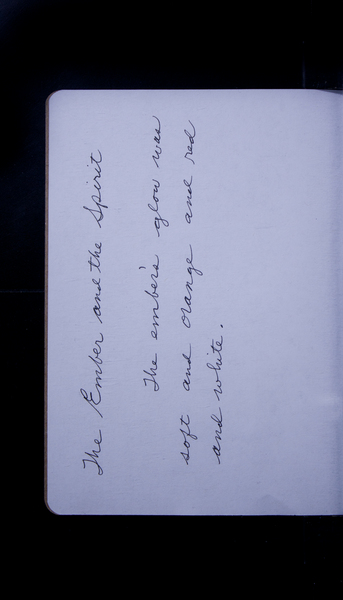 The Ember and the Spirit
The ember's glow was
soft and orange and red
and white.